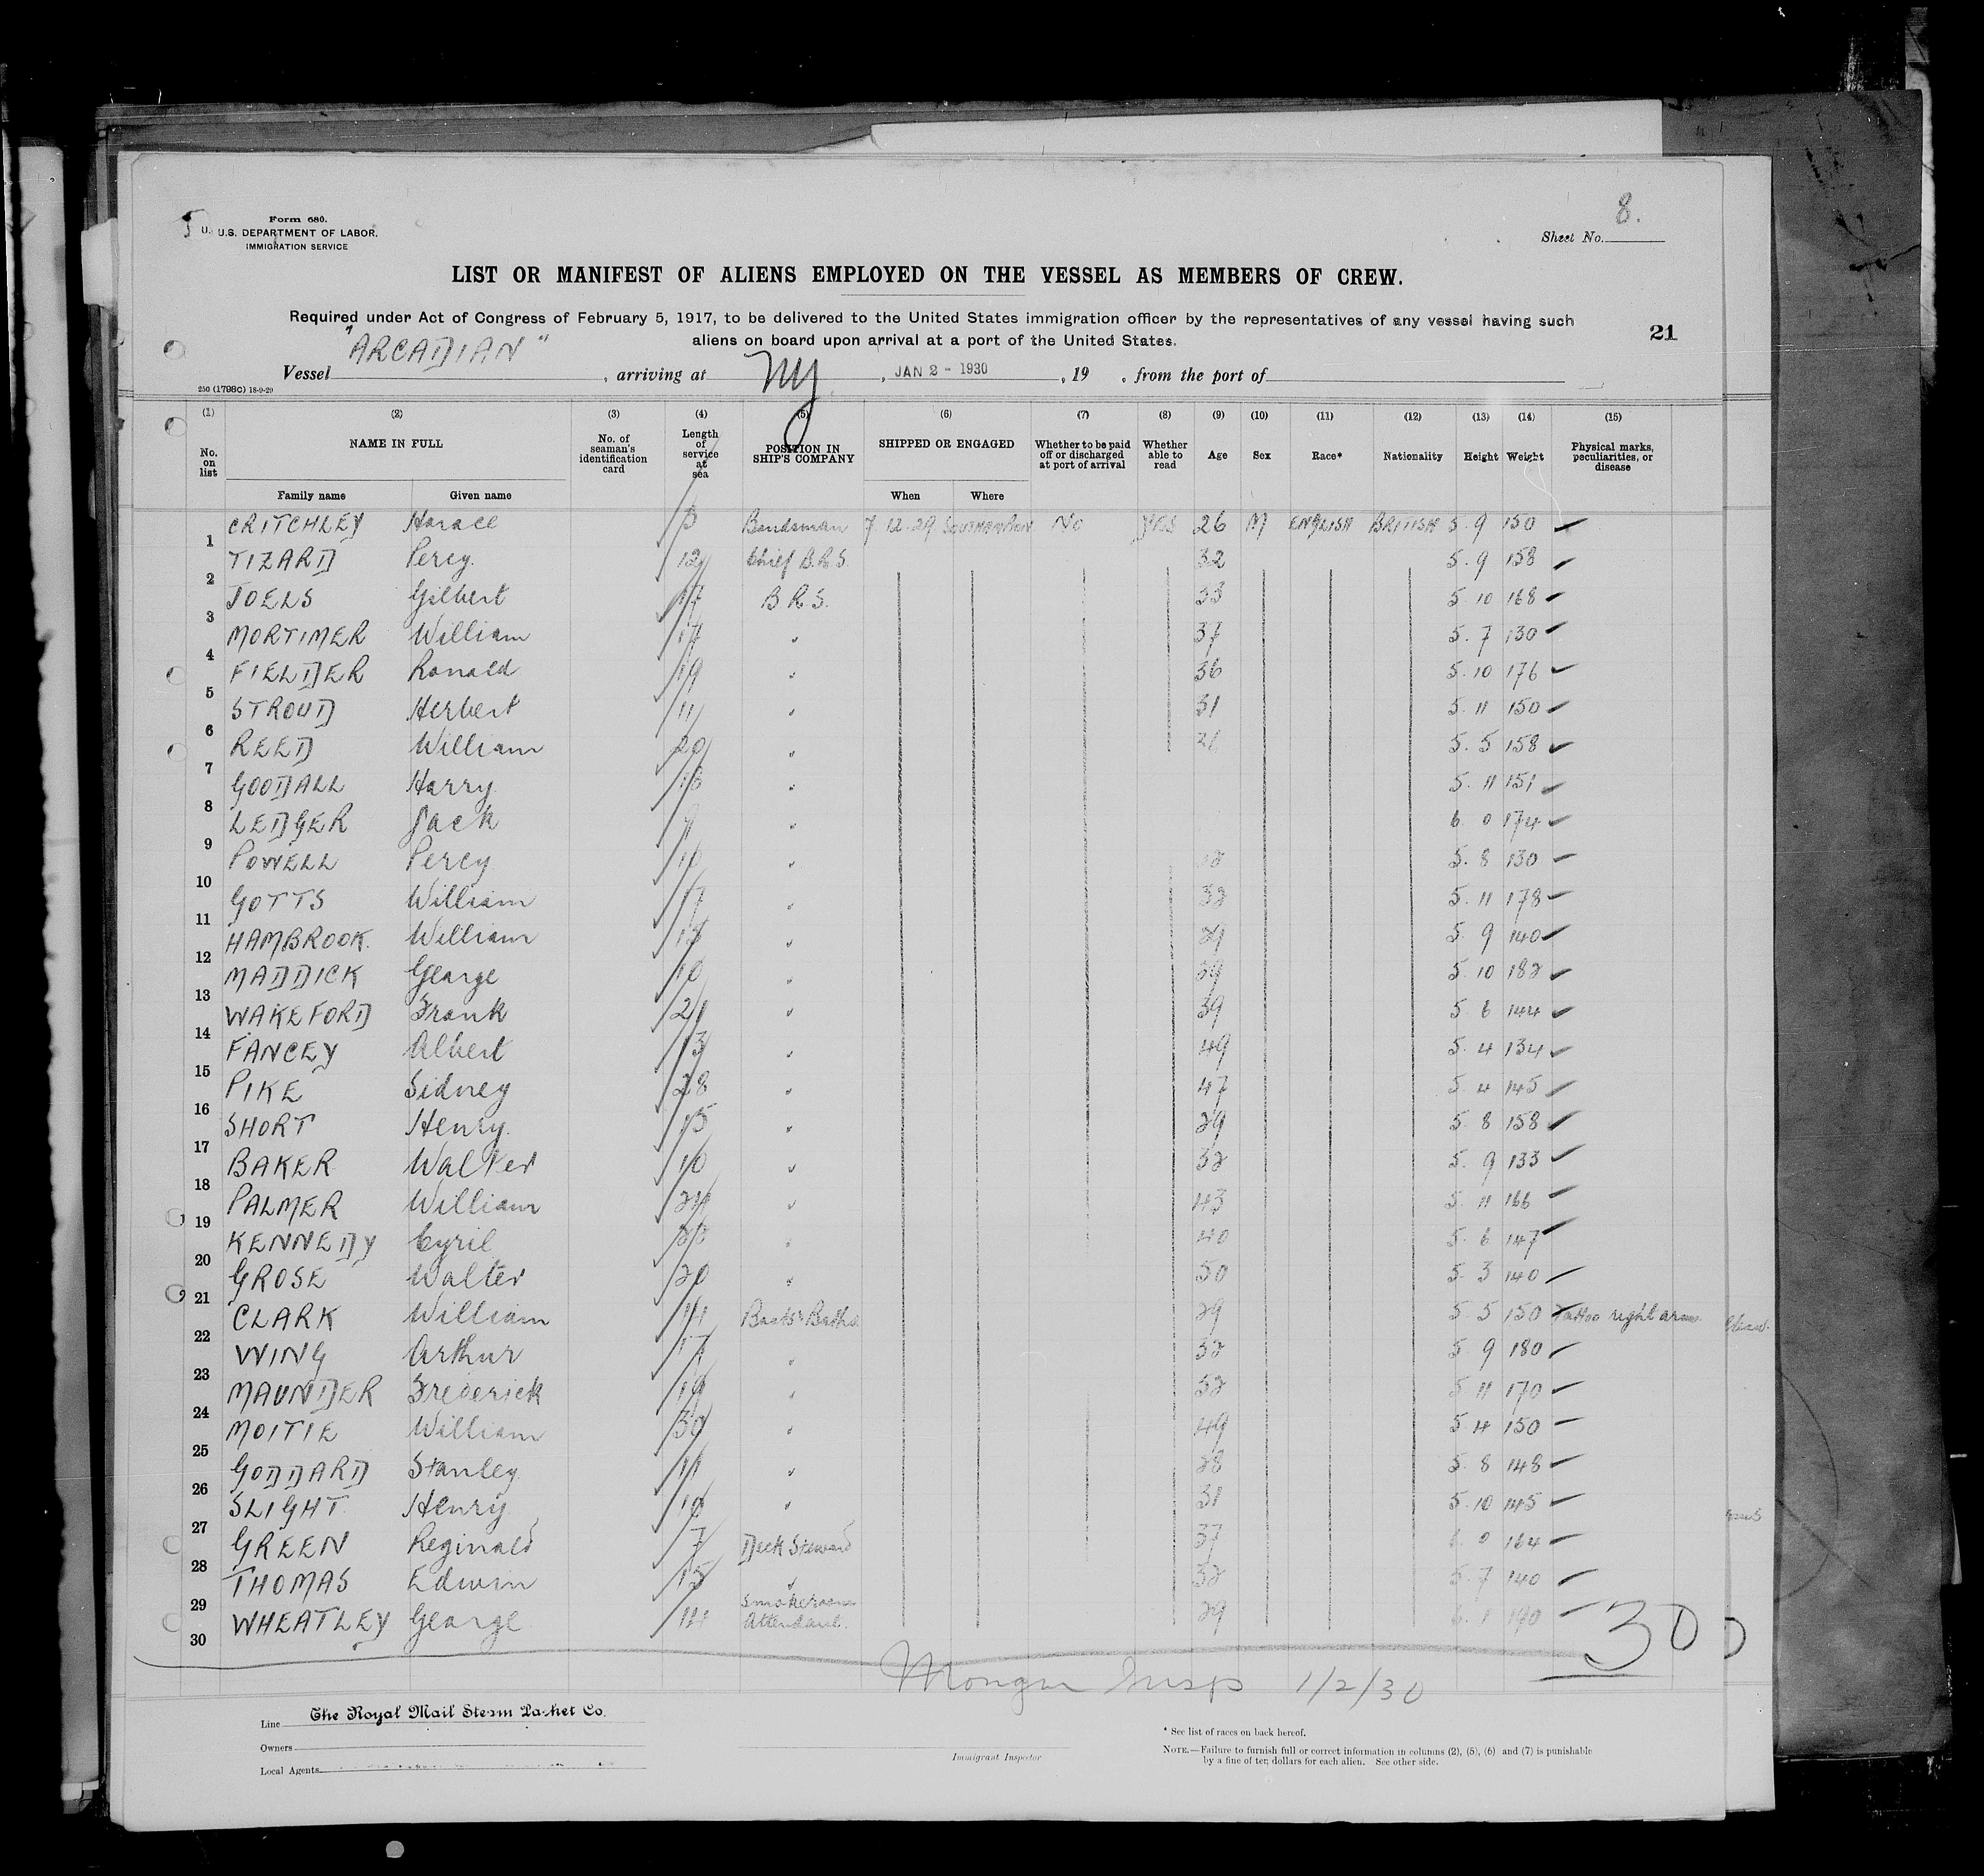 8.
Form 680.
U.S. DEPARTMENT OF LABOR.
IMMIGRATION SERVICE
Sheet No.
LIST OR MANIFEST OF ALIENS EMPLOYED ON THE VESSEL AS MEMBERS OF CREW.
Required under Act of Congress of February 5, 1917, to be delivered to the United States immigration officer by the representatives of any vessel having such
aliens on board upon arrival at a port of the United States.
21
"ARCADIAN"
Vessel , arriving at NY , JAN 2 - 1930 , 19 , from the port of
250 (1798C) 18-9-29
(1) (2) (3) (4) (5) (6) (7) (8) (9) (10) (11) (12) (13) (14) (15)
No. on list NAME IN FULL No. of seaman's identification card Length of service at sea POSITION IN SHIP'S COMPANY SHIPPED OR ENGAGED Whether to be paid off or discharged at port of arrival Whether able to read Age Sex Race* Nationality Height Weight Physical marks, peculiarities, or disease
Family name Given name When Where
1 CRITCHLEY Horace Bandsman 7 12-29 SOUTHAMPTON No YES 26 M ENGLISH BRITISH 5. 9 150
2 TIZARD Percy. 12 Chief B.R.S. 32 5. 9 158
3 JOELS Gilbert 17 B R S. 33 5. 10 168
4 MORTIMER William 17 " 37 5. 7 130
5 FIELDER Ronald 19 " 36 5. 10 176
6 STROUD Herbert 11 " 31 5. 11 150
7 REED William 20 " 5. 5 158
8 GOODALL Harry " 5. 11 151
9 LEDGER Jack " 6. 0 174
10 POWELL Percy " 5. 8 130
11 GOTTS William 17 " 32 5. 11 178
12 HAMBROOK. William " 5. 9 140
13 MADDICK George 10 " 39 5. 10 182
14 WAKEFORD Frank 21 " 39 5 6 144
15 FANCEY Albert 13 " 49 5. 4 134
16 PIKE Sidney 28 " 47 5. 4 145
17 SHORT Henry. 15 " 29 5. 8 158
18 BAKER Walter 10 " 32 5. 9 133
19 PALMER William 24 " 43 5. 11 166
20 KENNEDY Cyril " 40 5. 6 147
21 GROSE Walter 20 " 50 5. 3 140
22 CLARK William Boots & Baths 29 5 5 150 Tattoo right arm
23 WING Arthur 17 " 32 5 9 180
24 MAUNDER Frederick 19 " 5 11 170
25 MOITIE William 30 " 49 5 4 150
26 GODDARD Stanley 11 " 28 5. 8 148
27 SLIGHT. Henry " 31 5. 10 145
28 GREEN Reginald 7 Deck Steward 37 6. 0 164
29 THOMAS Edwin 15 " 32 5. 7 140
30 WHEATLEY George 14 Smokeroom Attendant. 29 6. 1 190
30
Insp 1/2/30
Line The Royal Mail Steam Packet Co.
Owners
Local Agents
Immigrant Inspector
* See list of races on back hereof.
NOTE.—Failure to furnish full or correct information in columns (2), (5), (6) and (7) is punishable
by a fine of ten dollars for each alien. See other side.